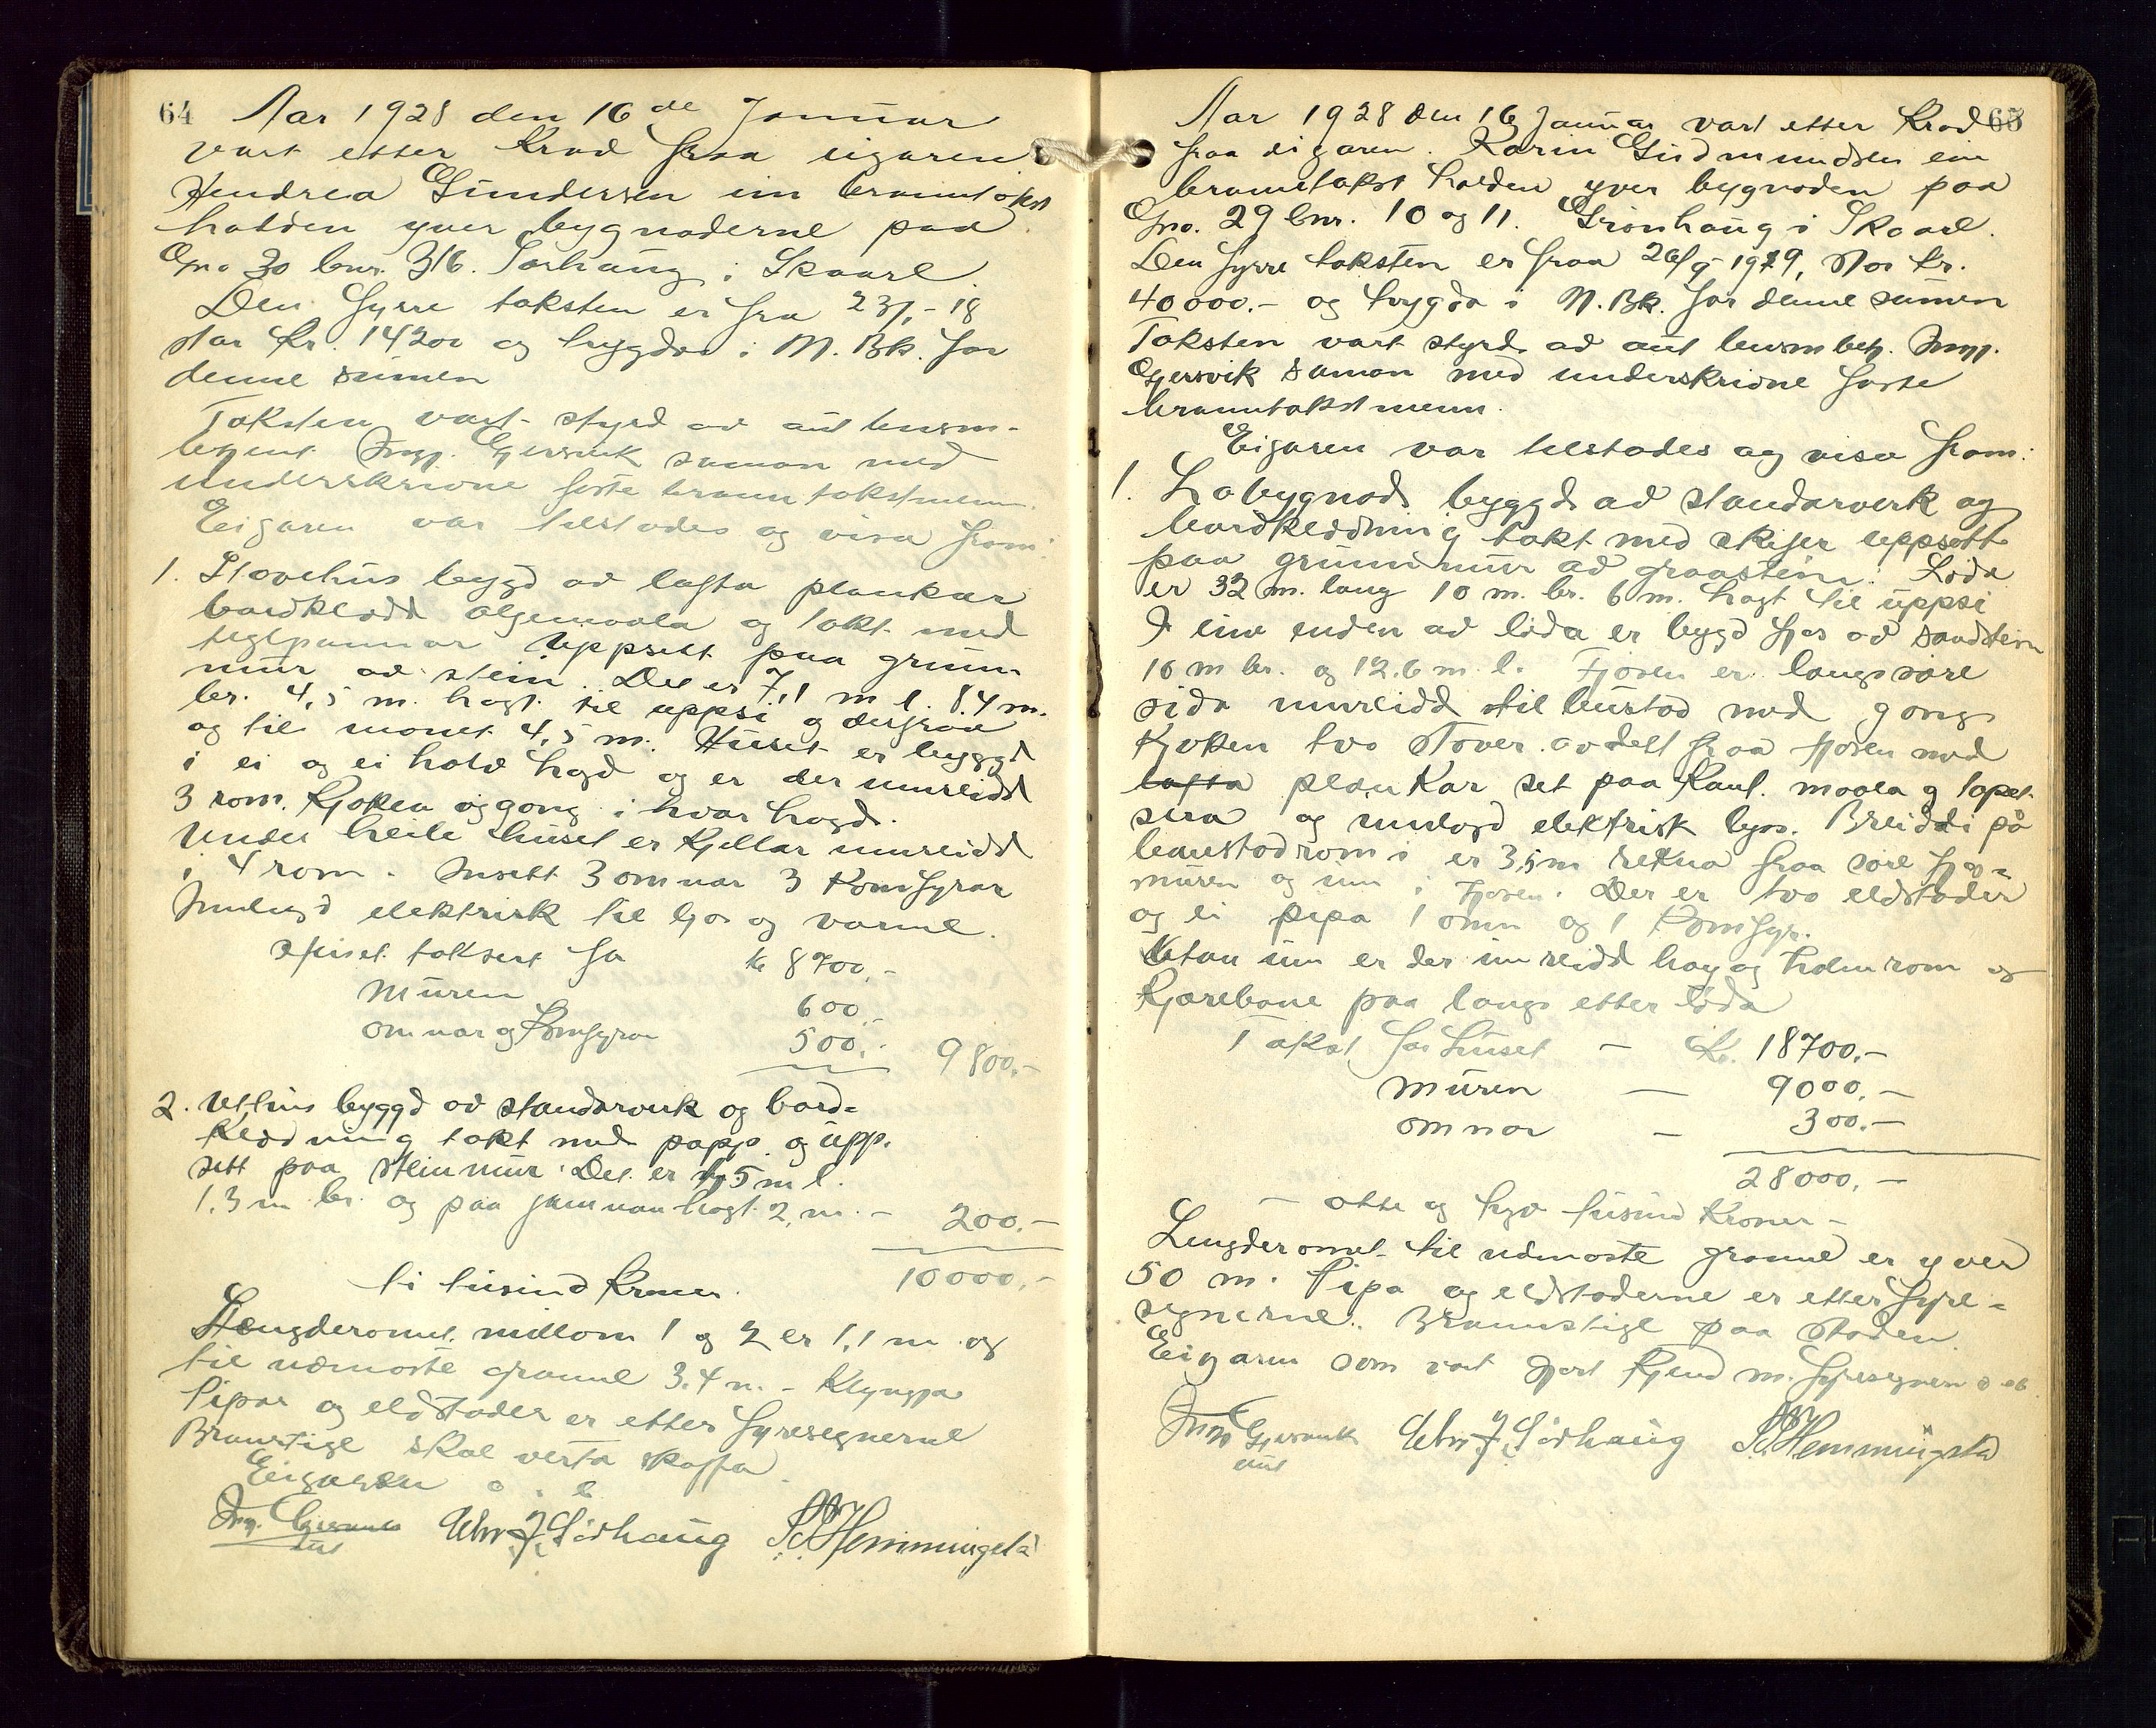 64 Aar 1928 den 16de Januar
vart etter Krav fraa eigaren
Hendrea Gundersen ein branntakst
halden yver bygnaderne paa
Gno 30 bnr. 316. Sørhaug i Skaare.
Den fyrre taksten er fra 23/1-18
stor Kr. 14200 og trygda i N. Bk. for
denne sumen
Taksten vart styrd av aut lensm-
betjent Ing. Gjersvik saman med
underskrivne faste branntakstmenn.
Eigaren var tilstades og visa fram:
1. Stovehus bygd av lafta plankar
bordklædd olgemaala og takt med
teglpannar uppsett paa grunn
mur av stein. Det er 7,1 m l. 8.4 m.
br. 4,5 m. høgt til uppsi og derfraa
og til mønet 4,5 m. Huset er byggd
i ei og ei halv høgd og er der innreidd
3 rom. Kjøken og gong i hvar høgd.
Under heile huset er Kjellar innreidd
i 4 rom. Insett 3 omnar 3 Komfyrar
Innlagd elektrisk til ljos og varme.
Huset taksert for kr 8700,-
Muren 600,-
omnar og Komfyrar 500,- 9800,-
2. Uthus byggd av standarverk og bord-
klædning takt med papp og upp-
sett paa steinmur. Det er 1,5 m l.
1,3 m br. og paa jamnan høgt 2, m. - 200.-
10000,-
ti tusind Kroner.
Længderomet millom 1 og 2 er 1,1 m og
til næmoste granne 3.4 m. - Klyngja
Pipor og eldstader er etter fyresegnerne
Brannstige skal verta skaffa.
Eigaren o. s. b.
Ing. Gjersvik aut Chr. J. Sørhaug S. S. Hemmingstad
Aar 1928 den 16 Januar vart etter Krav 65
fraa eigaren Karin Gudmundsen ein
branntakst halden yver bygnaden paa
Gno. 29 bnr. 10 og 11. Grønhaug i Skaare.
Den fyrre taksten er fraa 26/9-1919, stor kr.
40000.- og trygda i N. Bk. for denne sumen
Taksten vart styrd av aut lensmbetj. Ing.
Gjersvik saman med underskrivne faste
branntakstmenn.
Eigaren var tilstades og visa fram:
1. Løbygnad byggd av standarverk og
bordklædning takt med skifer uppsett
paa grunnmur av graastein. Løda
er 32 m. lang 10 m. br. 6 m. høgt til uppsi
I eine enden av løda er bygd fjos av sandstein
10 m br. og 12.6 m l. Fjosen er langs søre
sida innreidd til bustad med gong
Kjøken tvo stover avdelt fraa fjosen med
lafta plankar set paa Kant. maala og tapet-
sera og innlagd elektrisk ljos. Breiddi på
bustadromi er 3,5 m rekna fraa søre fjos-
muren og inn i fjosen. Der er tvo eldstader
og ei pipa 1 omn og 1 Komfyr.
Utan um er der innreidd høy og halm rom og
Kjørebane paa langs etter løda
Takst for huset - Kr. 18700,-
Muren - 9000,-
omnar - 300.-
28000,-
- otte og tjuo tusind Kroner -
Lengderomet til næmoste granne er yver
50 m. Pipa og eldstaderne er etter fyre-
segnerne. Brannstige paa staden
Eigaren som vart gjort kjend m. fyresegnen o sb.
Ing Gjersvik aut Chr. J. Sørhaug S. S. Hemmingstad